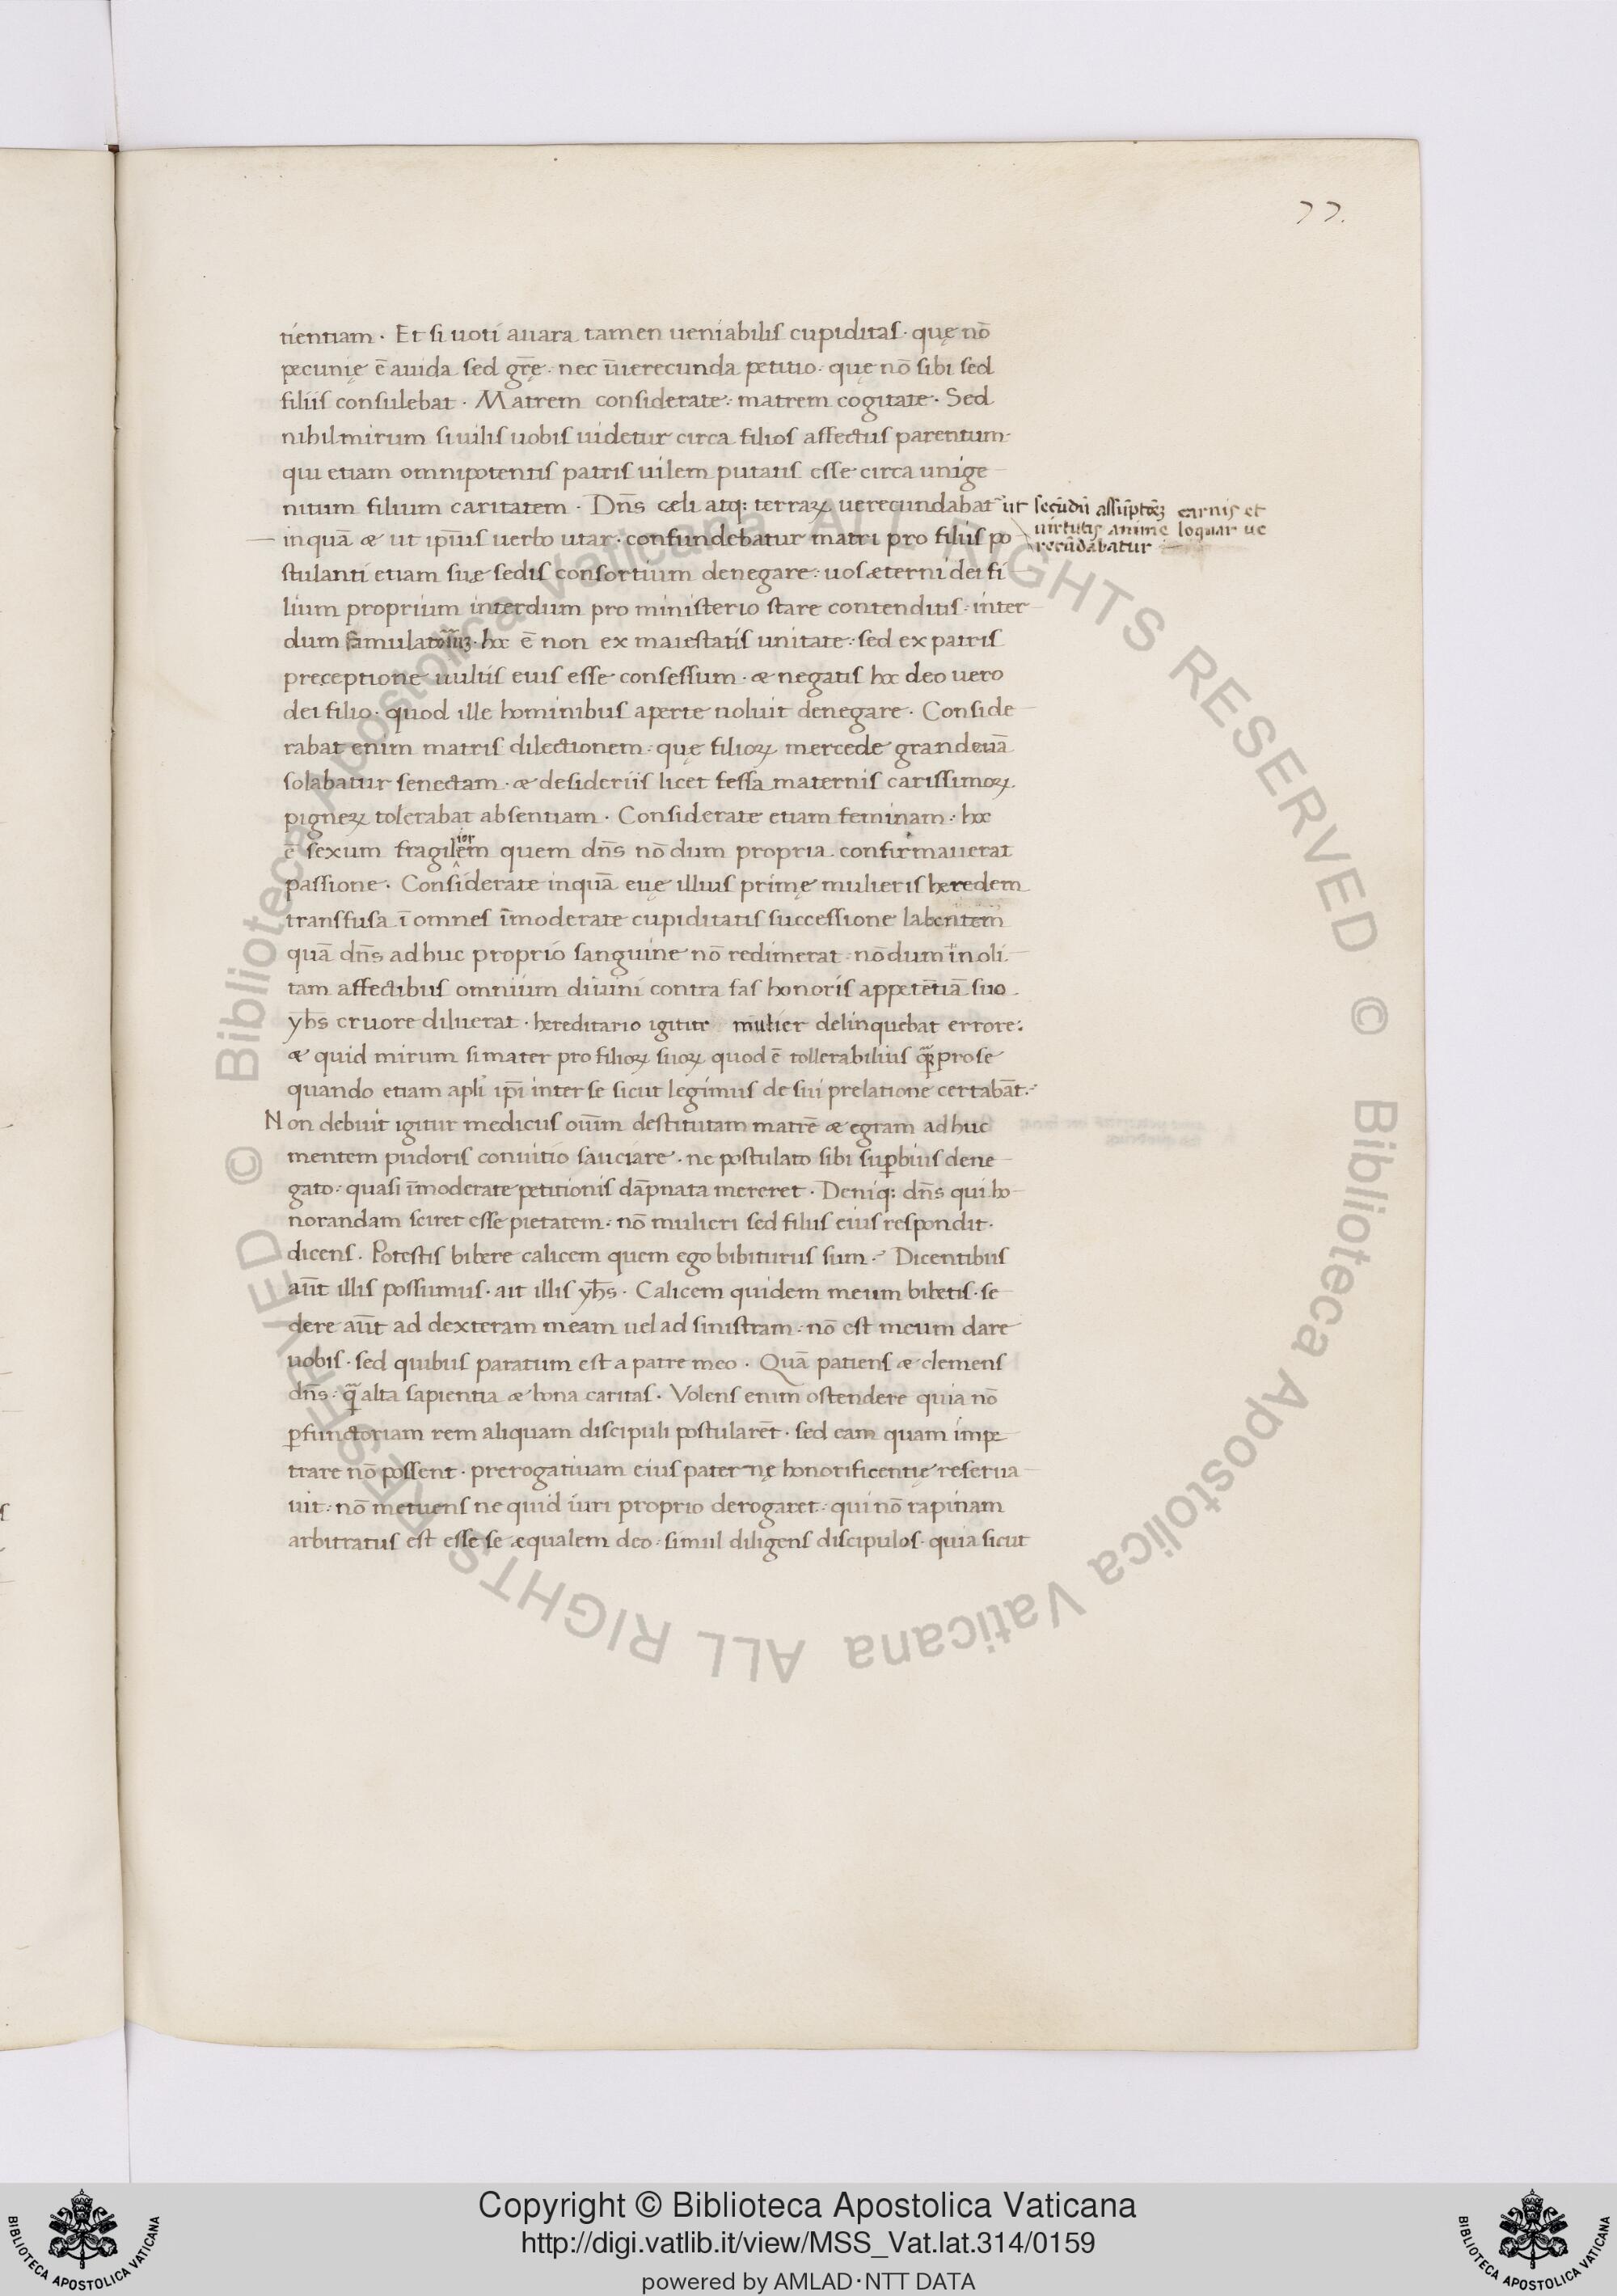 77.
tientiam · Et si uoti auara tamen ueniabilis cupiditas · quę nō
pecunię ē auida sed gr̄ę · nec ī̄uerecunda petitio · quę nō sibi sed
filiis consulebat · Matrem considerate · matrem cogitate · Sed
nihil mirum si uilis uobis uidetur circa filios affectus parentum ·
qui etiam omnipotentis patris uilem putatis esse circa unige
nitum filium caritatem · Dn̄s cæli atq: terraꝝ uerecundabat᷑
ut secūdū assūptōęꝫ carnis et
uirtutis anime loquar ue
recūdabatur
inquā æ ut ip̄ius uerbo utar · confundebatur matri pro filiis po
stulanti etiam suæ sedis consortium denegare · uos æterni dei fi
lium proprium interdum pro ministerio stare contenditis · inter
dum hoc ē non ex maiestatis unitate · sed ex patris
preceptione uultis euis esse consessum · æ negatis hoc deo uero
dei filio · quod ille hominibus aperte noluit denegare · Conside
rabat enim matris dilectionem · quę filioꝝ mercede grandeuā
solabatur senectam · æ desideriis licet fessa maternis carissimoꝝ
pigneꝝ tolerabat absentiam · Considerate etiam feminam · hoc
ē sexum fragil^ior em quem dn̄s nō dum propria confirmauerat
passione · Considerate inquā euę illius primę mulieris heredem
transfusa ī omnes īmoderate cupiditatis successione labentem
quā dn̄s adhuc proprio sanguine nō redimerat · nōdum inoli
tam affectibus omnium diuini contra fas honoris appetētiā suo
yh̄s cruore diluerat · hereditario igitur mulier delinquebat errore:
æ quid mirum si mater pro filioꝝ suoꝝ quod ē tollerabilius quā pro se
quando etiam apl̄i ip̄i inter se sicut legimus de sui prelatione certabāt ·
Non debuit igitur medicus ouiū̄m destitutam matrē æ egram adhuc
mentem pudoris conuitio sauciare · ne postulato sibi sup̱bius dene
gato · quasi īmoderate petitionis dāpnata mereret · Deniq: dn̄s qui ho
norandam sciret esse pietatem · nō mulieri sed filiis eius respondit ·
dicens · Potestis bibere calicem quem ego bibiturus sum · Dicentibus
aūt illis possumus · ait illis yh̄s · Calicem quidem meum bibetis · se
dere aūt ad dexteram meam uel ad sinistram · nō est meum dare
uobis · sed quibus paratum est a patre meo · Quā patiens æ clemens
dn̄s · q̄ alta sapientia æ bona caritas · Volens enim ostendere quia nō
ꝑfunctoriam rem aliquam discipuli postularēt · sed eam quam impe
trare nō possent · prerogatiuam eius paternę honorificentię reserua
uit · nō metuens ne quid iuri proprio derogaret · qui nō rapinam
arbitratus est esse se æqualem deo · simul diligens discipulos · quia sicut
© Biblioteca Apostolica Vaticana ALL RIGHTS RESERVED © Biblioteca Apostolica Vaticana ALL RIGHTS RESERVED
Copyright © Biblioteca Apostolica Vaticana
http://digi.vatlib.it/view/MSS_Vat.lat.314/0159
powered by AMLAD·NTT DATA
BIBLIOTECA APOSTOLICA VATICANA
BIBLIOTECA APOSTOLICA VATICANA